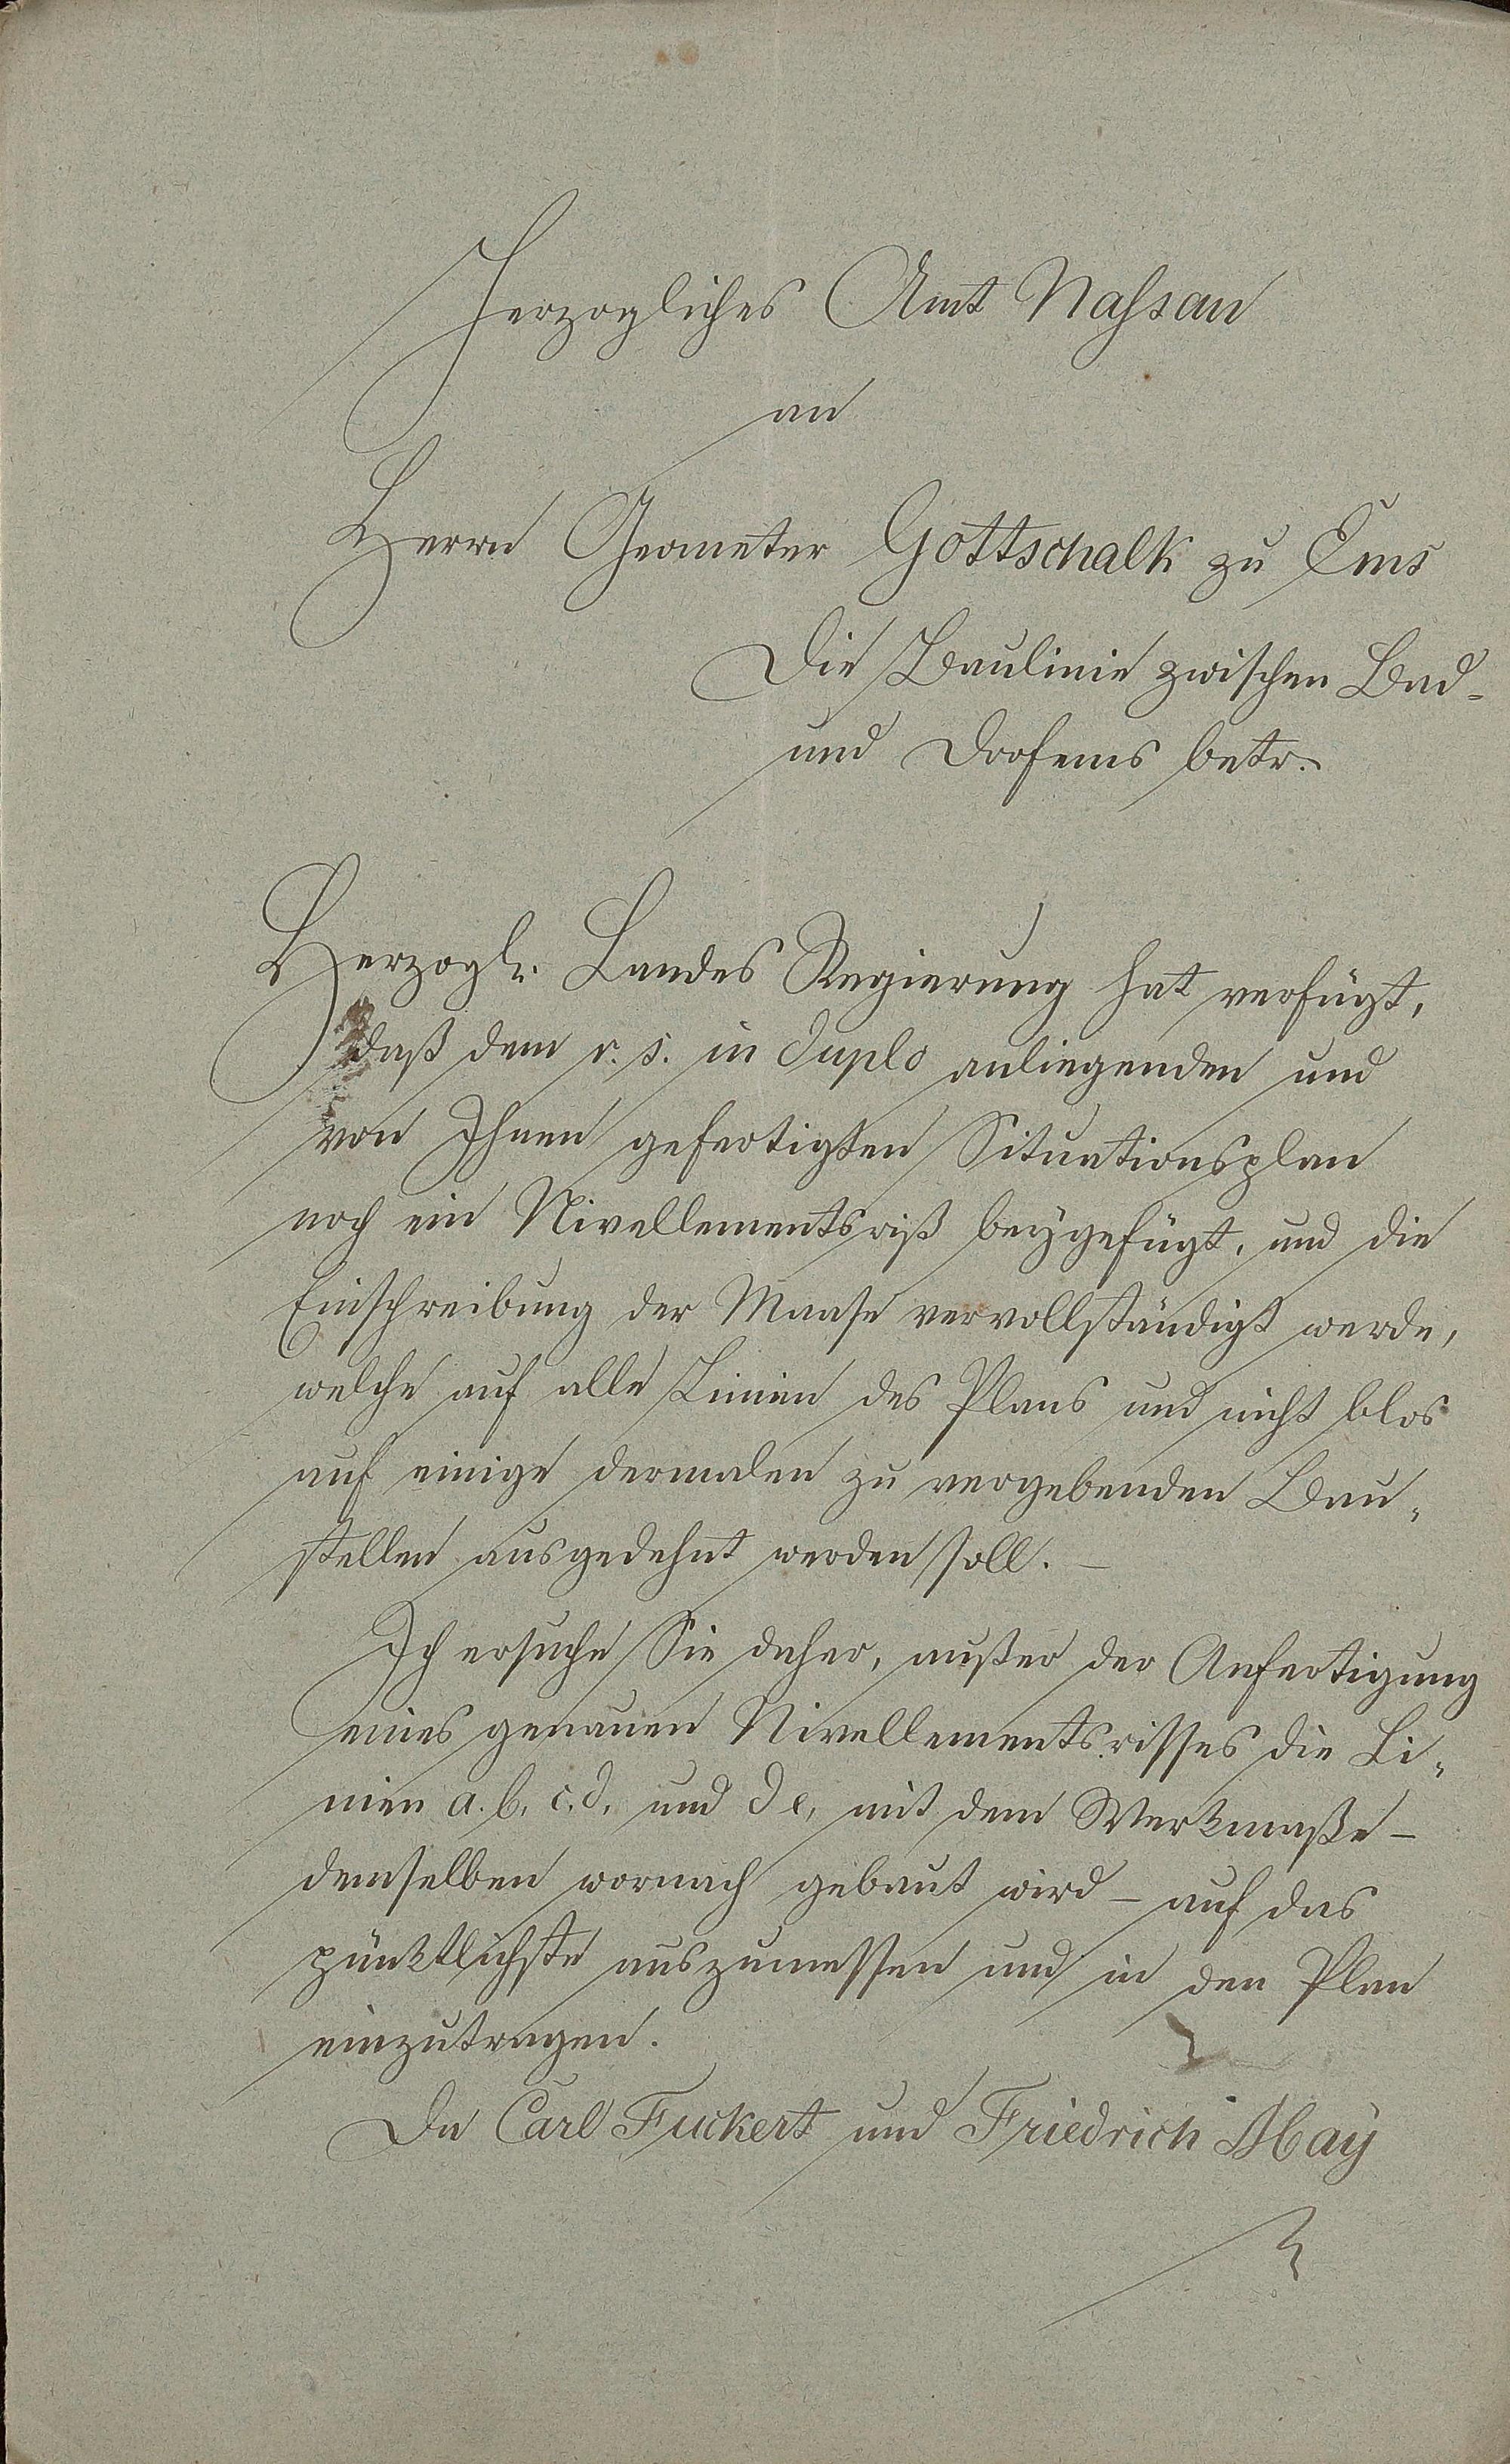 Herzogliches Amt Nassau
an
Herrn Geometer Gottschalk zu Ems
Die Baulinie zwischen Bad-
und Dorfems betr.
Herzogl. Landes Regierung hat verfügt,
daß dem r. s. in duplo anliegenden und
von Ihnen gefertigten Situationsplan
noch ein Nivellementsriß beygefügt, und die
Einschreibung der Maase vervollständigt werde,
welche auf alle Linien des Plans und nicht blos
auf einige dermalen zu vergebenden Bau-
stellen ausgedehnt werden soll. -
Ich ersuche Sie daher, außer der Anfertigung
eines genauen Nivellementsrisses die Li-
nien a. b, c. d, und d e, mit dem Werkmaße -
demselben wornach gebaut wird - auf das
pünktlichste auszumessen und in den Plan
einzutragen.
Da Carl Fuckert und Friedrich May